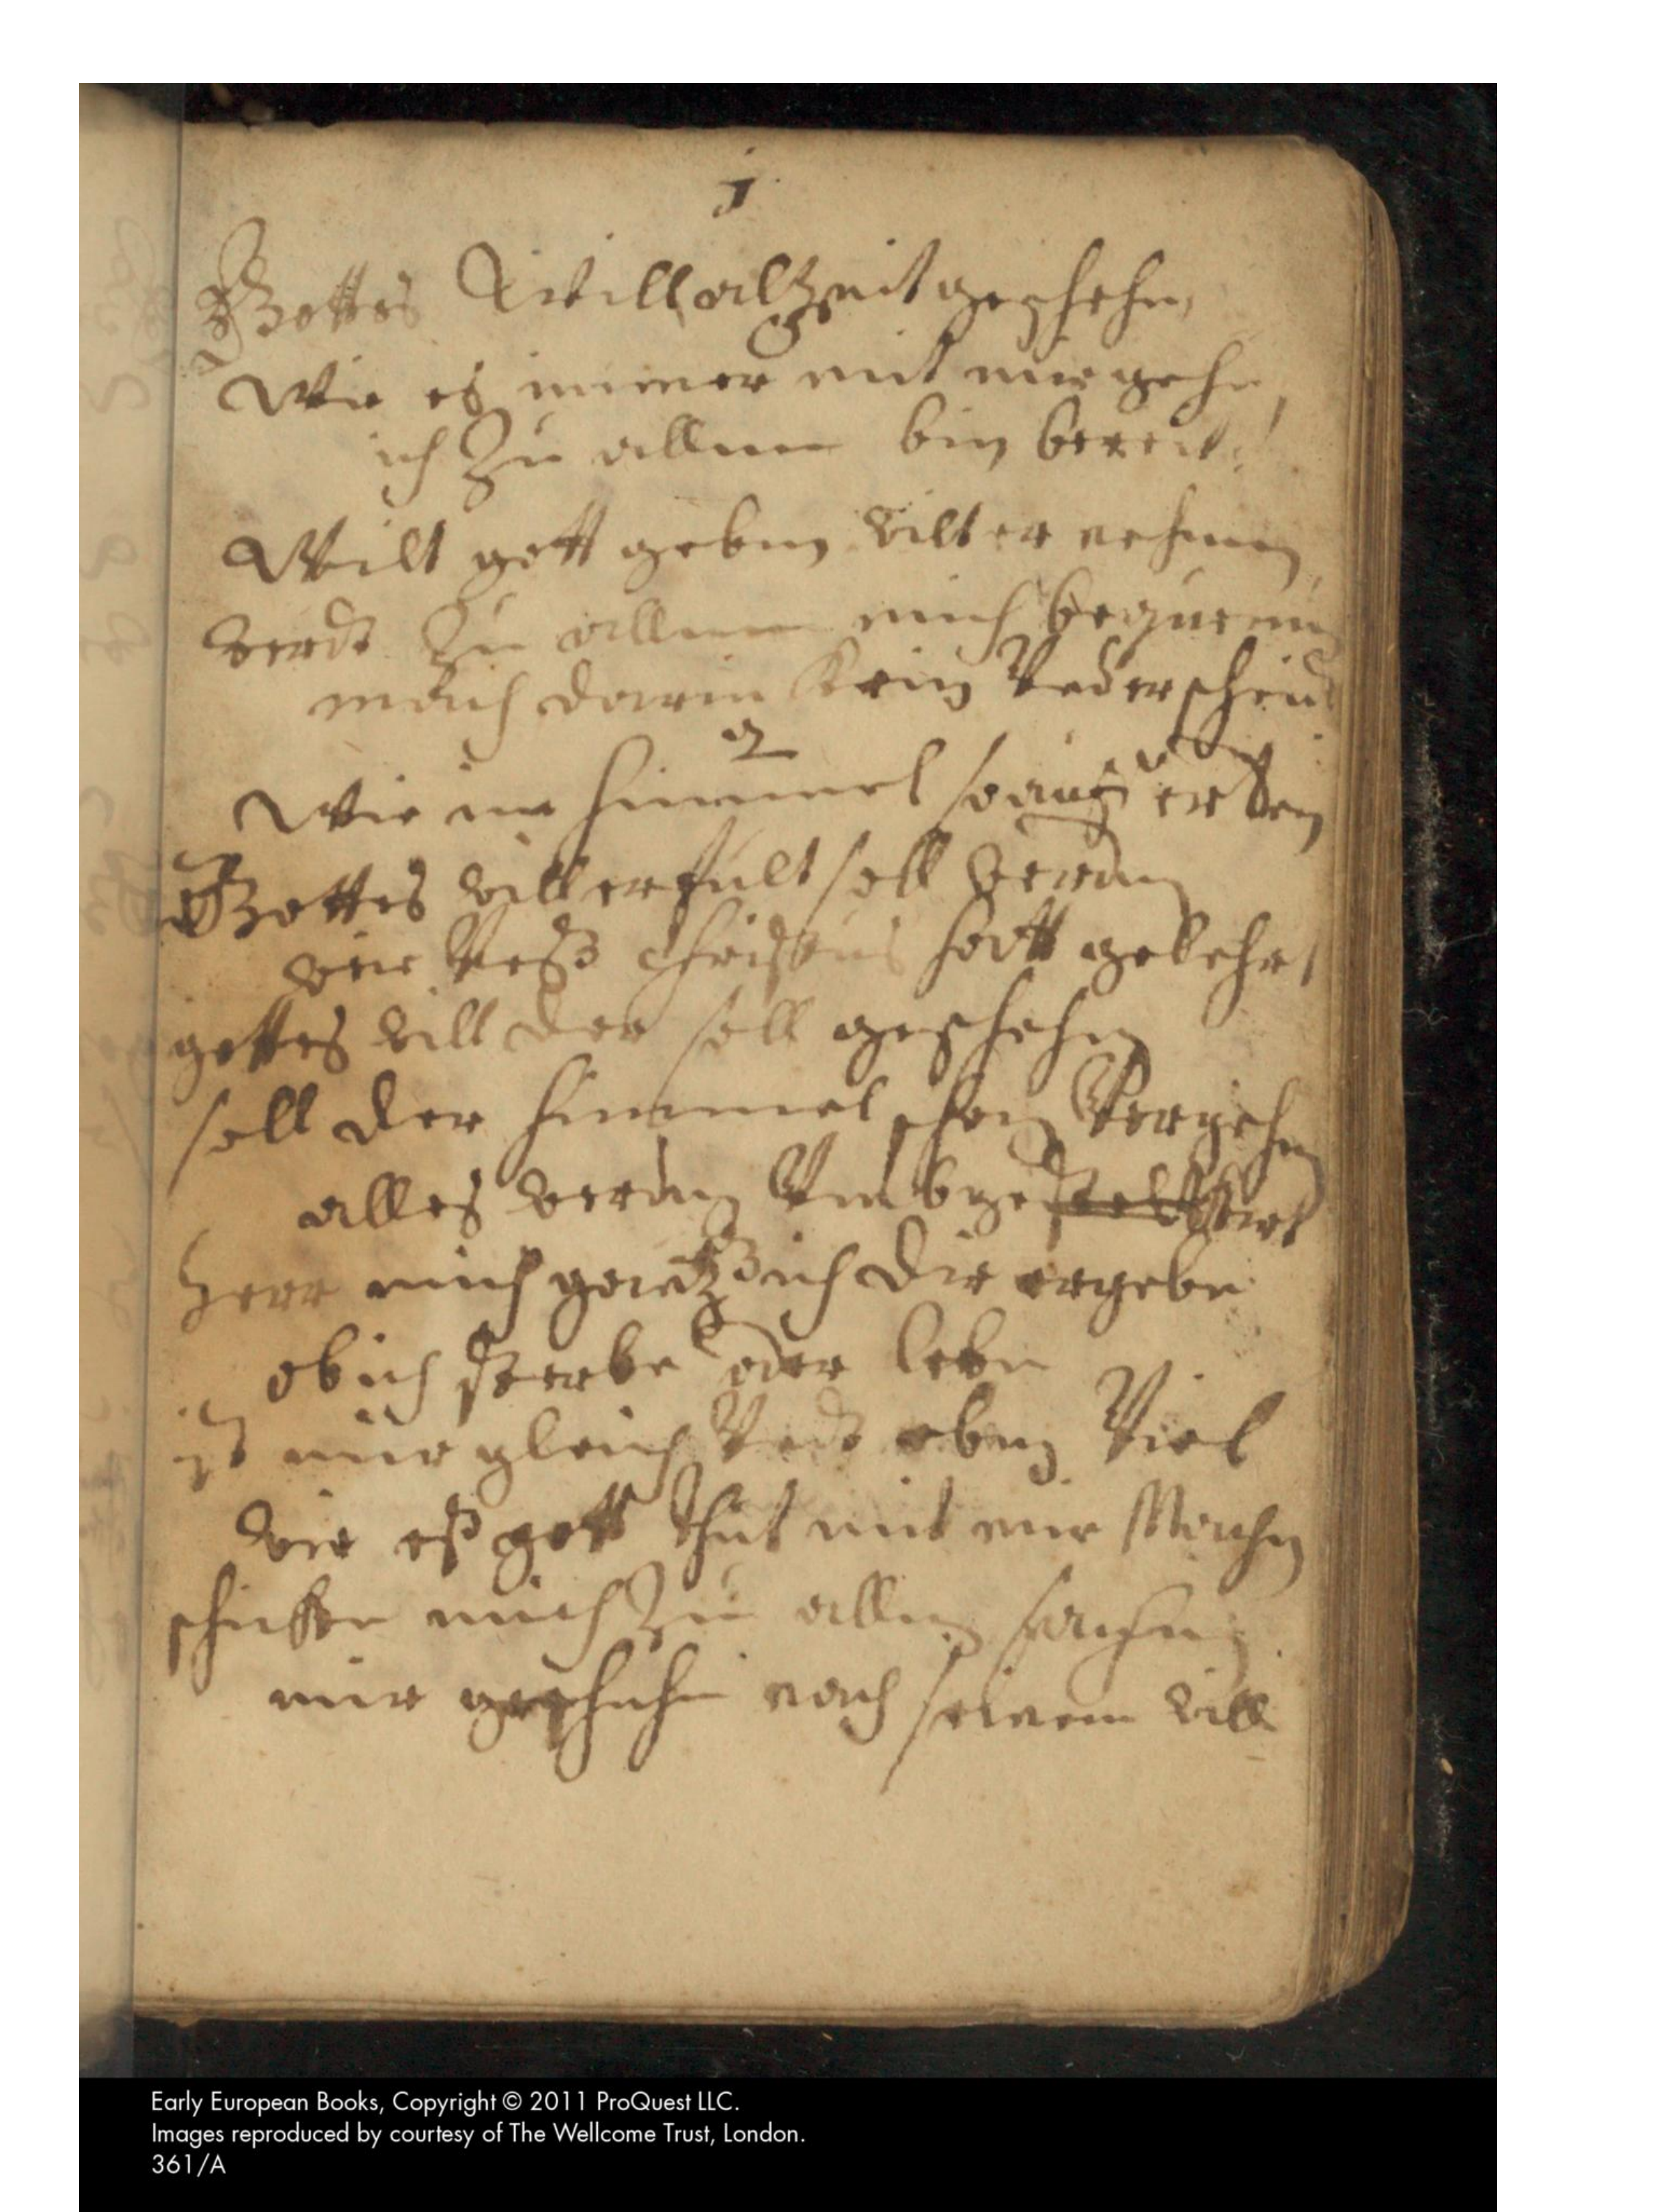 1
Gottes Will alzeit geschehe,
Wie es immer mit mir gehe,
ich Zu allem bin bereit.
Will gott geben will er nehmen
werdt Zu allem mich bequemen
mach darin kein Underscheid
2
Wie im himmel so auff erden
Gottes will erfült soll werden
wie Unß Christus hatt gelehrt
gottes will der soll geschehen
soll der himmel schon Vergehen
alles werden Umbge
Herr mich gantz ich dir ergebe
ob ich sterbe oder lebe
ist mir gleich Undt eben Viel
wie eß gott thut mit mir Machen
schicke mich Zu allen sachen
mir geschehe nach seinem will
Early European Books, Copyright © 2011 ProQuest LLC.
Images reproduced by courtesy of The Wellcome Trust, London.
361/A